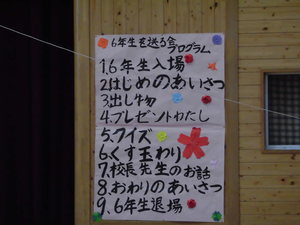 6年生を送る会
プログラム
1.6年生入場
2.はじめのあいさつ
3.出し物
4.プレゼントわたし
5.クイズ
6.くす玉わり
7.校長先生のお話
8.おわりのあいさつ
9.6年生退場